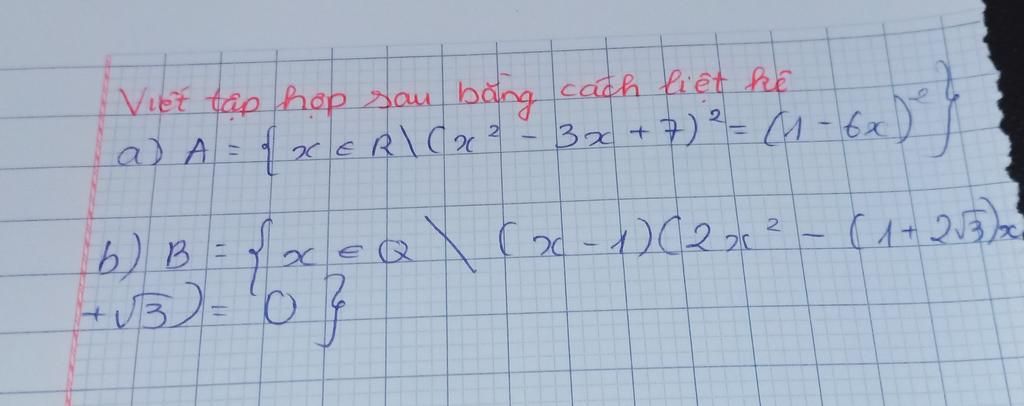 Viết tập hợp sau bằng cách liệt kê
a) A = { x ∈ R \ (x² - 3x + 7)² = (1 - 6x)² }
b) B = { x ∈ Q \ (x - 1)(2x² - (1 + 2√3)x
+ √3) = 0 }